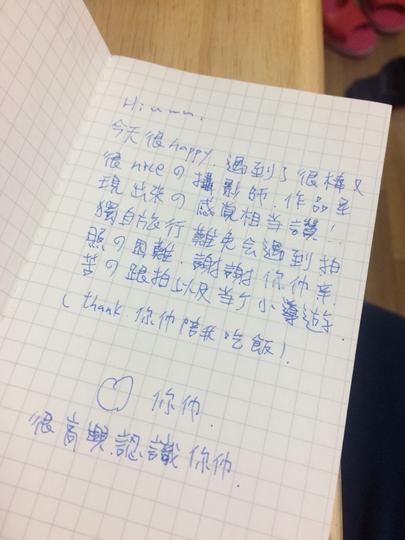 Hiuuuu.
今天很happy. 遇到了很棒又
很niceの攝影師. 作品呈
現出來の感覺相当讚!
獨自旅行難免会遇到拍
照の困難. 謝謝你們辛
苦の跟拍以及当了小導遊.
( thank 你們陪我吃飯!
你們.
很高興認識你們.